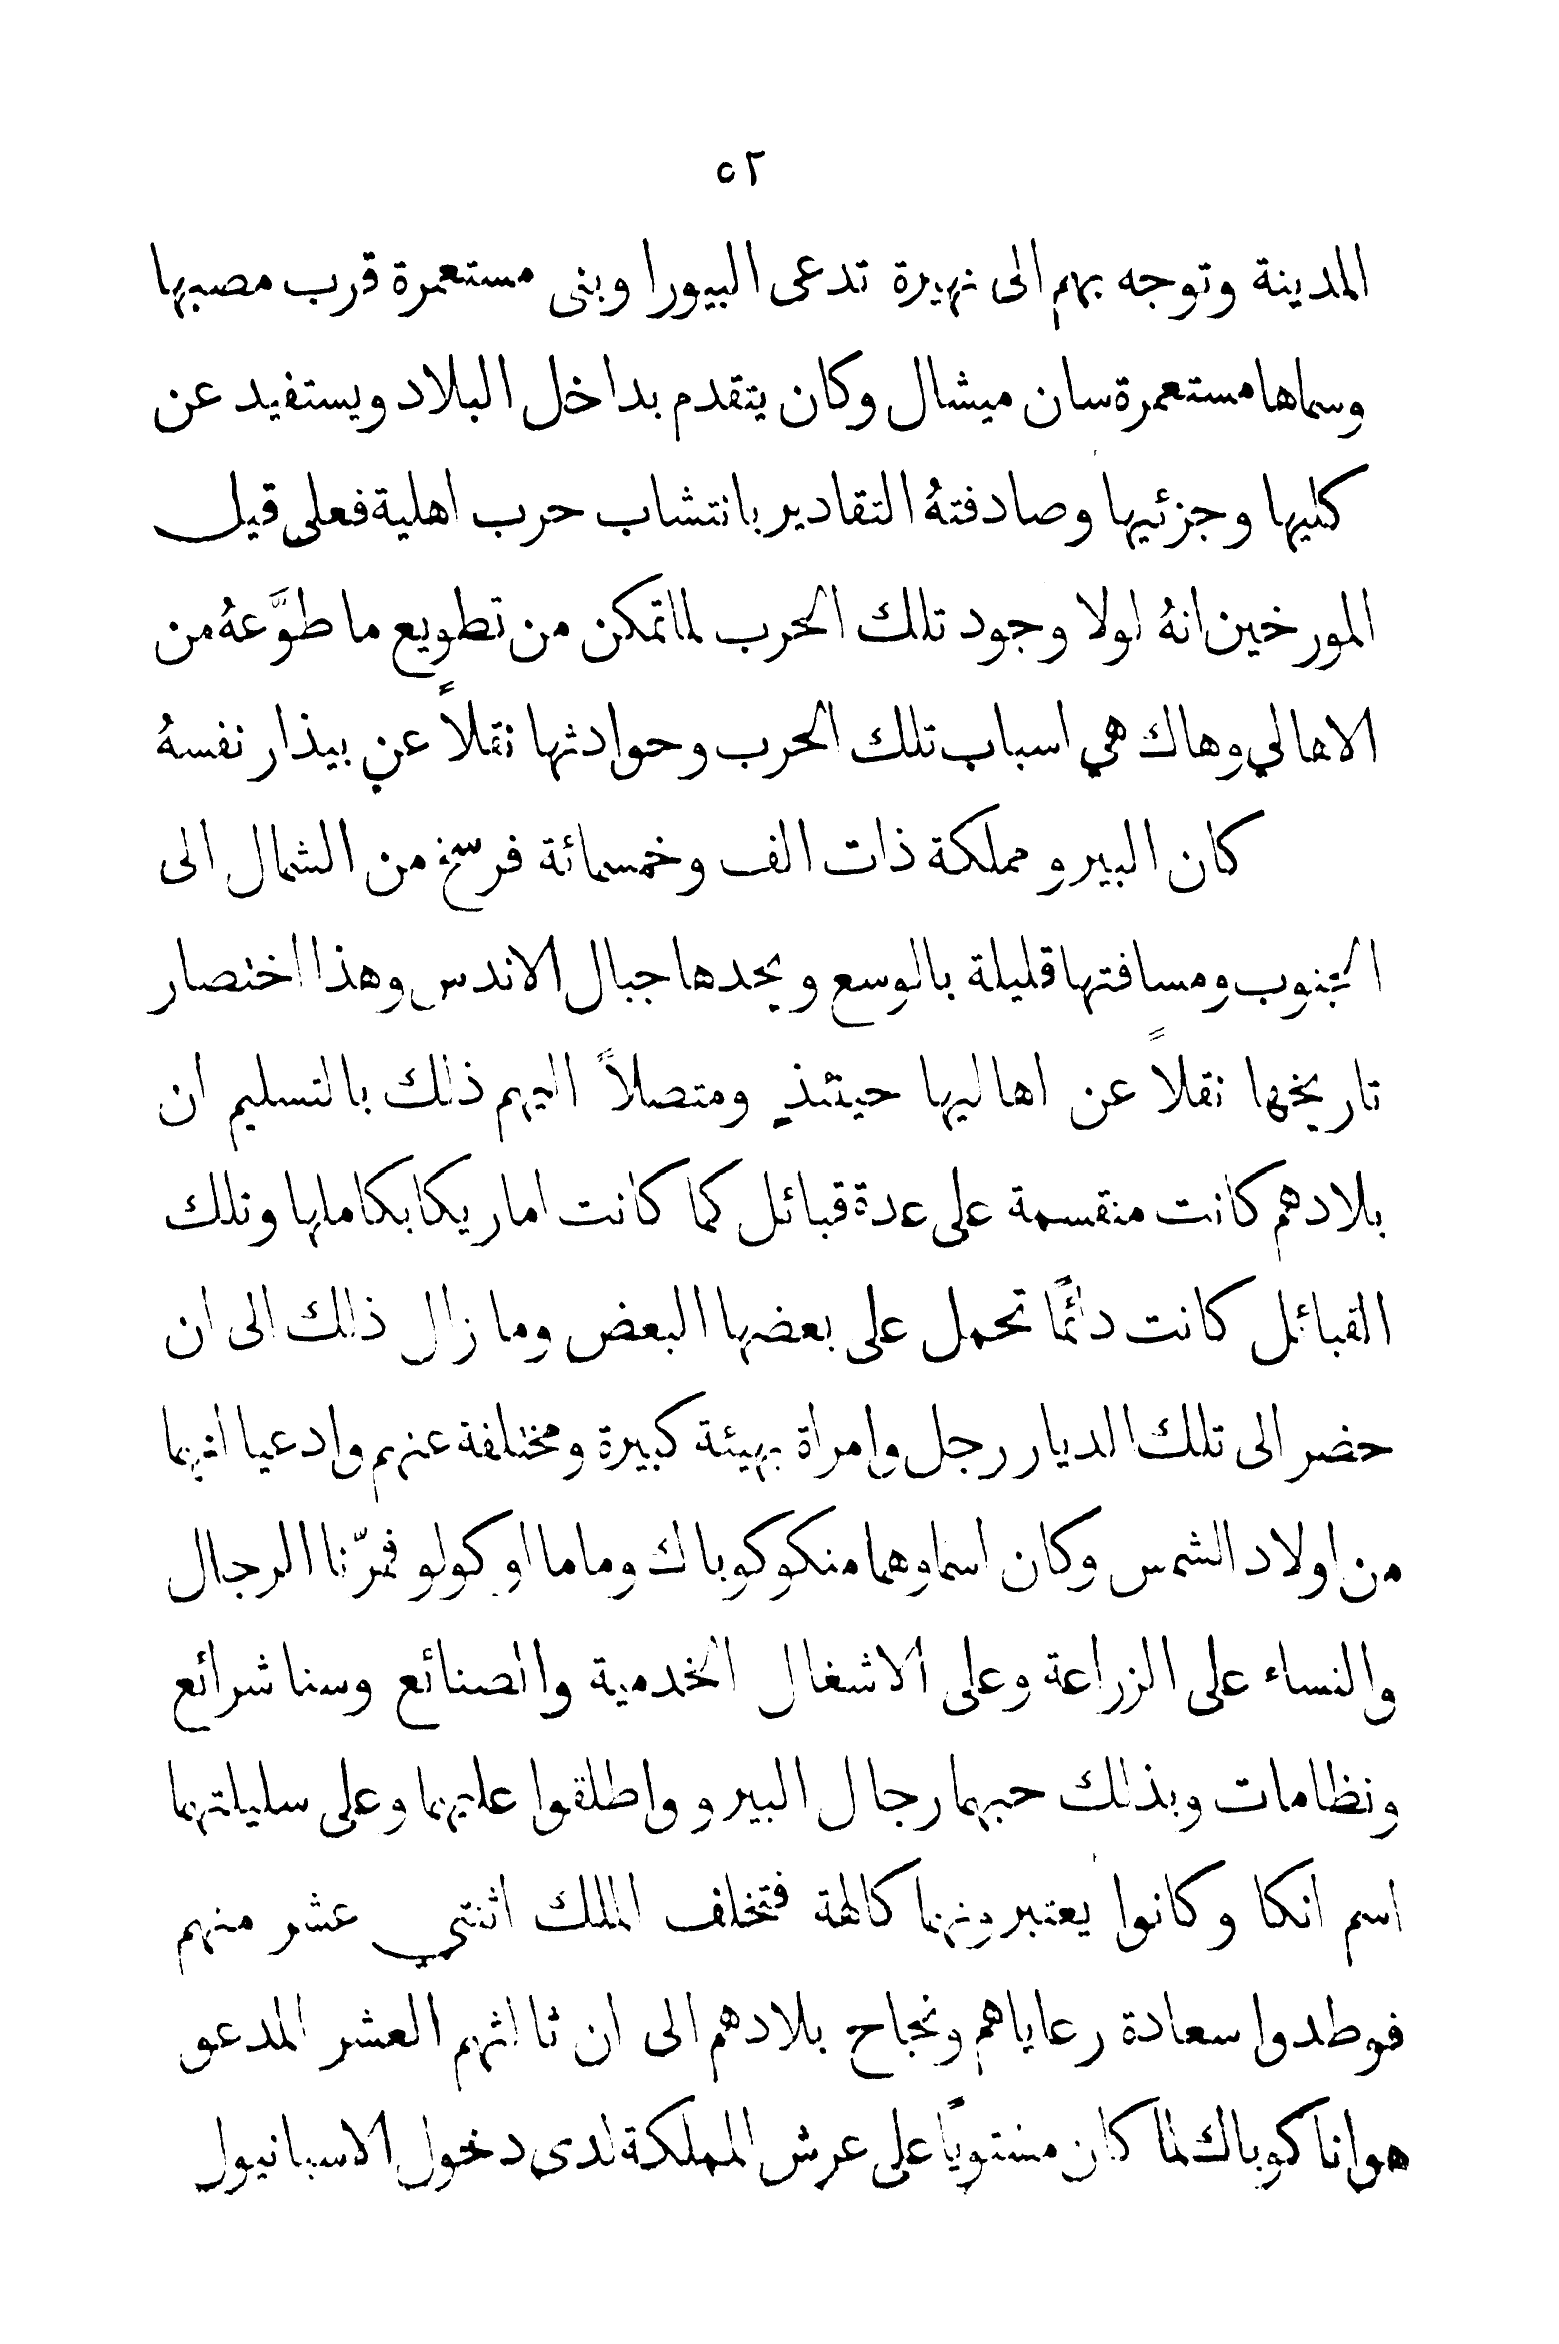 ٥٢
المدينة وتوجه بهم الى نهيرة تدعى البيورا وبنى مستعمرة قرب مصبها
وسماها مستعمرة سان ميشال وكان يتقدم بداخل البلاد ويستفيد عن
كليها وجزئيها وصادفتهُ التقادير بانتشاب حرب اهلية فعلى قيل
المورخين انهُ لولا وجود تلك الحرب لما تمكن من تطويع ما طوَّعهُ من
الاهالي وهاك هي اسباب تلك الحرب وحوادثها نقلاً عن بيذار نفسهُ
كان البيرو مملكة ذات الف وخمسمائة فرسخ من الشمال الى
الجنوب ومسافتها قليلة بالوسع ويحدها جبال الاندس وهذا اختصار
تاريخها نقلاً عن اهاليها حينئذٍ ومتصلاً اليهم ذلك بالتسليم ان
بلادهم كانت منقسمة على عدة قبائل كما كانت اماريكا بكاملها وتلك
القبائل كانت دائمًا تحمل على بعضها البعض وما زال ذلك الى ان
حضر الى تلك الديار رجل وامراة بهيئة كبيرة ومختلفة عنهم وادعيا انهما
من اولاد الشمس وكان اسماوهما منكوكوباك وماما اوكولو فمرّنا الرجال
والنساء على الزراعة وعلى الاشغال الخدمية والصنائع وسنا شرائع
ونظامات وبذلك حبهما رجال البيرو واطلقوا عليهما وعلى سليلتهما
اسم انكا وكانوا يعتبرونهما كالهة فتخلف الملك اثنتي عشر منهم
فوطدوا سعادة رعاياهم ونجاح بلادهم الى ان ثالثهم العشر المدعو
هوانا كوباك لما كان مستويًا على عرش المملكة لدى دخول الاسبانيول